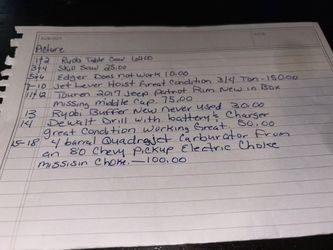 Picture
1+2 Ryobi Table Saw 60.00
3+4 Skill Saw 25.00
5+6 Edger Does not work 10.00
7-10 Jet Lever Hoist Great Condition 3/4 Ton - 150.00
11+12 2017 Jeep Patriot Rim New in Box
missing middle Cap. 75.00
13 Ryobi Buffer New never used 30.00
14 Dewalt Drill with battery & Charger
great Condition working Great. 50.00
15-18 4 barral Quadrajet Carburator From
an 80 Chevy Pickup Electric Choke
missisin Choke. — 100.00